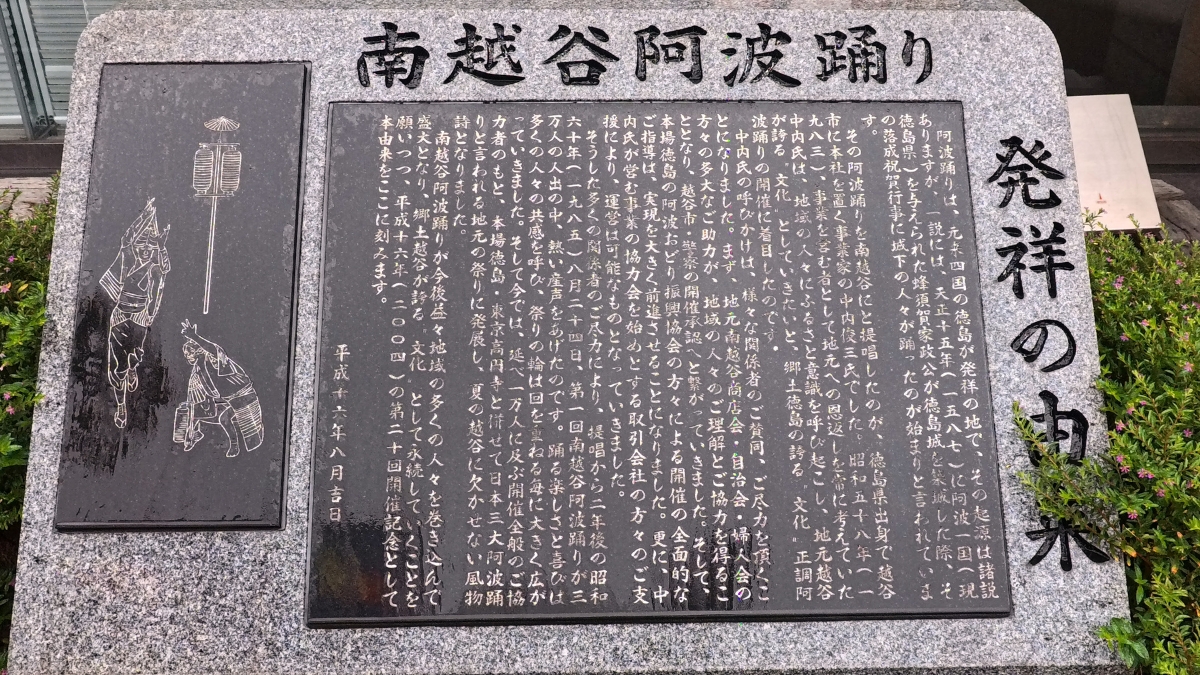 南越谷阿波踊り
発祥の由来
阿波踊りは、元来四国の徳島が発祥の地で、その起源は諸説
ありますが、一説には、天正十五年（一五八七）に阿波一国（現
徳島県）を与えられた蜂須賀家政公が徳島城を築城した際、そ
の落成祝賀行事に城下の人々が踊ったのが始まりと言われていま
す。
その阿波踊りを南越谷にと提唱したのが、徳島県出身で越谷
市に本社を置く事業家の中内俊三氏でした。昭和五十八年（一
九八三）、事業を営む者として地元への恩返しを常に考えていた
中内氏は、地域の人々にふるさと意識を呼び起こし、地元越谷
が誇る〝文化〟としていきたいと、郷土徳島の誇る〝文化〟正調阿
波踊りの開催に着目したのです。
中内氏の呼びかけは、様々な関係者のご賛同、ご尽力を頂くこ
とになりました。まず、地元南越谷商店会・自治会・婦人会の
方々の多大なご助力が、地域の人々のご理解とご協力を得るこ
ととなり、越谷市・警察の開催承認へと繋がっていきました。そして、
本場徳島の阿波おどり振興協会の方々による開催の全面的な
ご指導は、実現を大きく前進させることになりました。更に、中
内氏が営む事業の協力会を始めとする取引会社の方々のご支
援により、運営は可能なものとなっていきました。
そうした多くの関係者のご尽力により、提唱から二年後の昭和
六十年（一九八五）八月二十四日、第一回南越谷阿波踊りが三
万人の人出の中、熱い産声をあげたのです。踊る楽しさと喜びは
多くの人々の共感を呼び、祭りの輪は回を重ねる毎に大きく広が
っていきました。そして今では、延べ一万人に及ぶ開催全般のご協
力者のもと、本場徳島、東京高円寺と併せて日本三大阿波踊
りと言われる地元の祭りに発展し、夏の越谷に欠かせない風物
詩となりました。
南越谷阿波踊りが今後益々地域の多くの人々を巻き込んで
盛大となり、郷土越谷が誇る〝文化〟として永続していくことを
願いつつ、平成十六年（二〇〇四）の第二十回開催記念として
本由来をここに刻みます。
平成十六年八月吉日